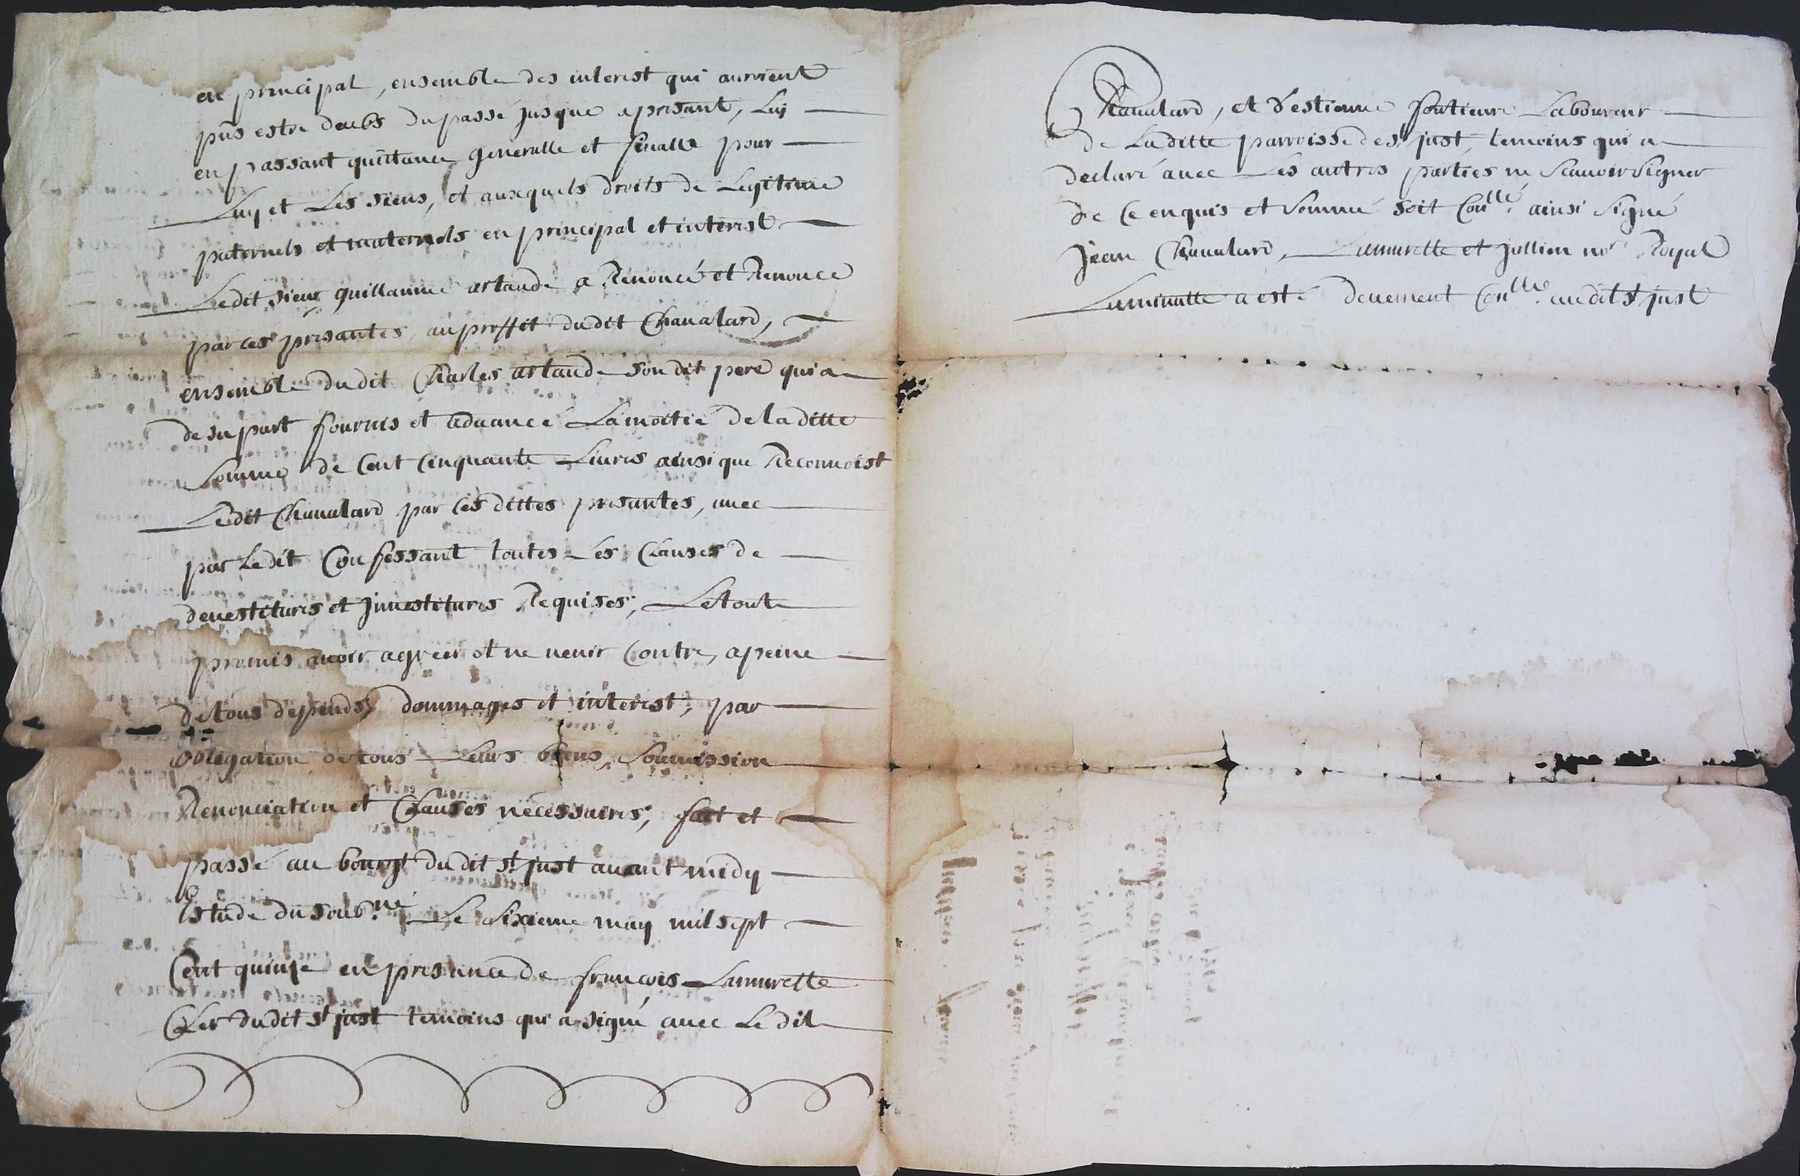 en principal, ensemble des interest qui auroient
pûs estre deubs du passé jusque aprésant, Luy
en passant quittance generalle et finalle pour
Luy et Les siens, et auxquels droits de Legitime
paternels et maternels en principal et interest
Ledit sieur guillaume artaude a Renoncé et Renonce
par ces presantes au proffit dudit Chaualard,
ensemble dudit Charles artaude son dit pere qui a
de sa part fournis et aduancé La moitié de laditte
Somme de Cent Cinquante Liures ainsi que Reconnoist
Ledit Chaualard par ces dittes presantes, auec
par Ledit Confessant toutes Les Clauses de
deuestitures et Jnuestitures Requises; Le tout
promis auoir agreer et ne uenir Contre, a peine
de tous depends, dommages et interest, par
obligation de tous Leurs biens, Soumission
Renonciation et Clauses necessaires; fait et
passé au bourgt dudit st just auant midy
Estude du soub.né Le Sixieme may mil sept
Cent quinze en presance de françois Lamurette
Cler dudit st just temoins qui a signé auec Le dit
Chaualard, et d'estienne Laboureur
de Laditte parroisse de st just, temoins qui a
declaré auec Les autres parties ne Scauoir Signer
de Ce enquis et Sommé Soit Conllé. ainsi Signé
Jean Chaualard, Lamurette et Jullien nore Royal
La minutte a esté deuement Conllée. audit st just